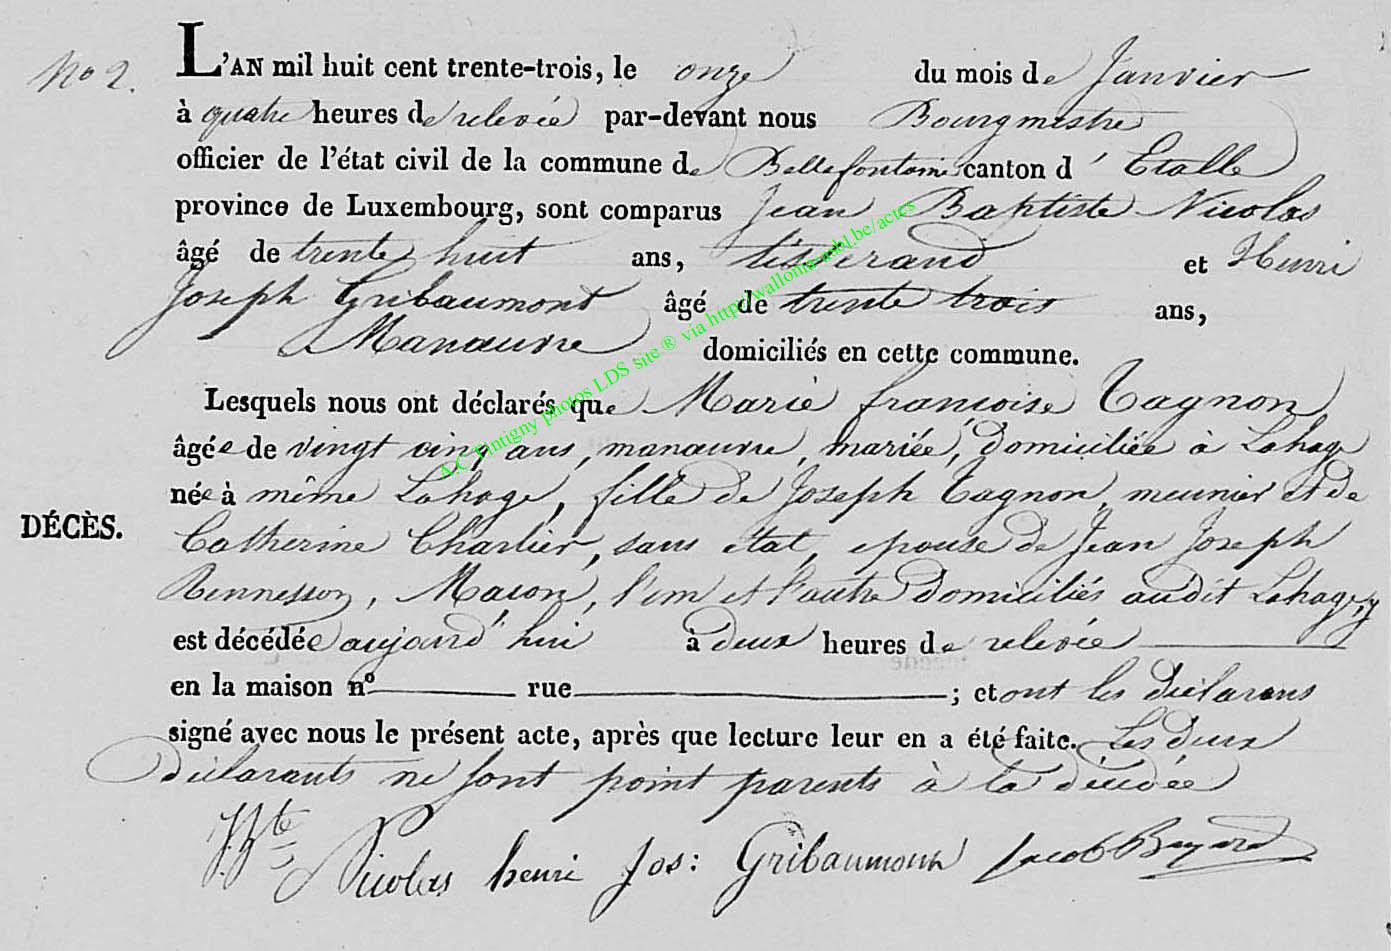 No 2.
L'AN mil huit cent trente-trois, le onze du mois de Janvier
à quatre heures de relevée par-devant nous Bourgmestre
officier de l'état civil de la commune de Bellefontaine canton d'Etalle
province de Luxembourg, sont comparus Jean Baptiste Nicolas
âgé de trente huit ans, tisserand et Henri
Joseph Gribaumont âgé de trente trois ans,
Manœuvre domiciliés en cette commune.
Lesquels nous ont déclarés que Marie françoise Tagnon
âgée de vingt cinq ans, manœuvre, mariée, domiciliée à Lahage
née à même Lahage, fille de Joseph Tagnon, meunier et de
DÉCÈS.
Catherine Charlier, sans état, epouse de Jean Joseph
Rennesson, Maçon, l'un et l'autre domiciliés audit Lahage, y
est décédée aujourd'hui à deux heures de relevée
en la maison nº rue ; et ont les déclarans
signé avec nous le présent acte, après que lecture leur en a été faite. Les deux
déclarants ne sont point parents à la décédée
J. Bte Nicolas henri Jos: Gribaumont Jacob Bayard
A.C Tintigny photos LDS site ® via http://wallonia-mbl.be/actes